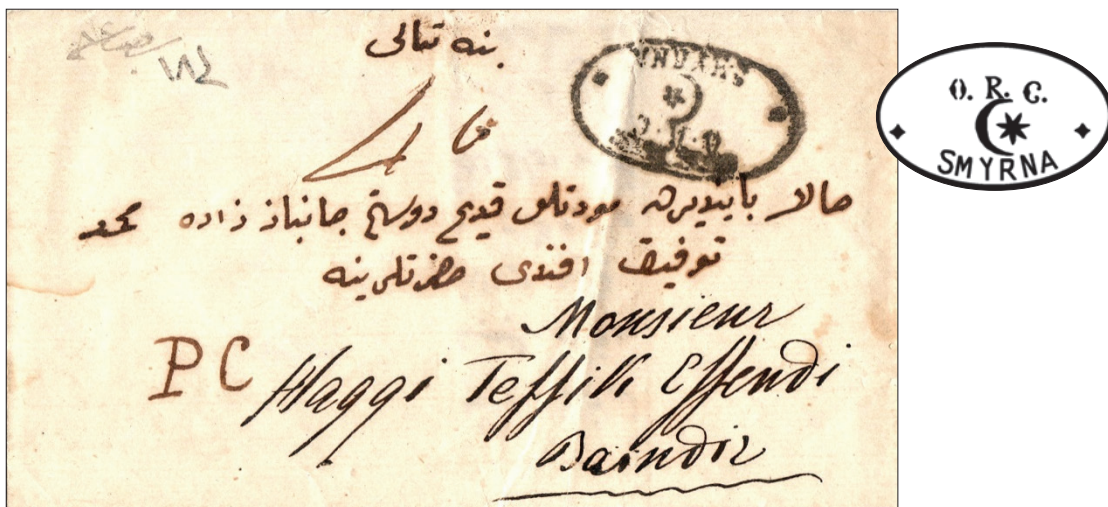 بنه تعالی
O. R. C.
SMYRNA
حالا بایندیرده مودتلو قدیم دوستم جانباز زاده محمد
توفیق افندی حضرتلرینه
Monsieur
PC Haggi Teffik Effendi
Baindir